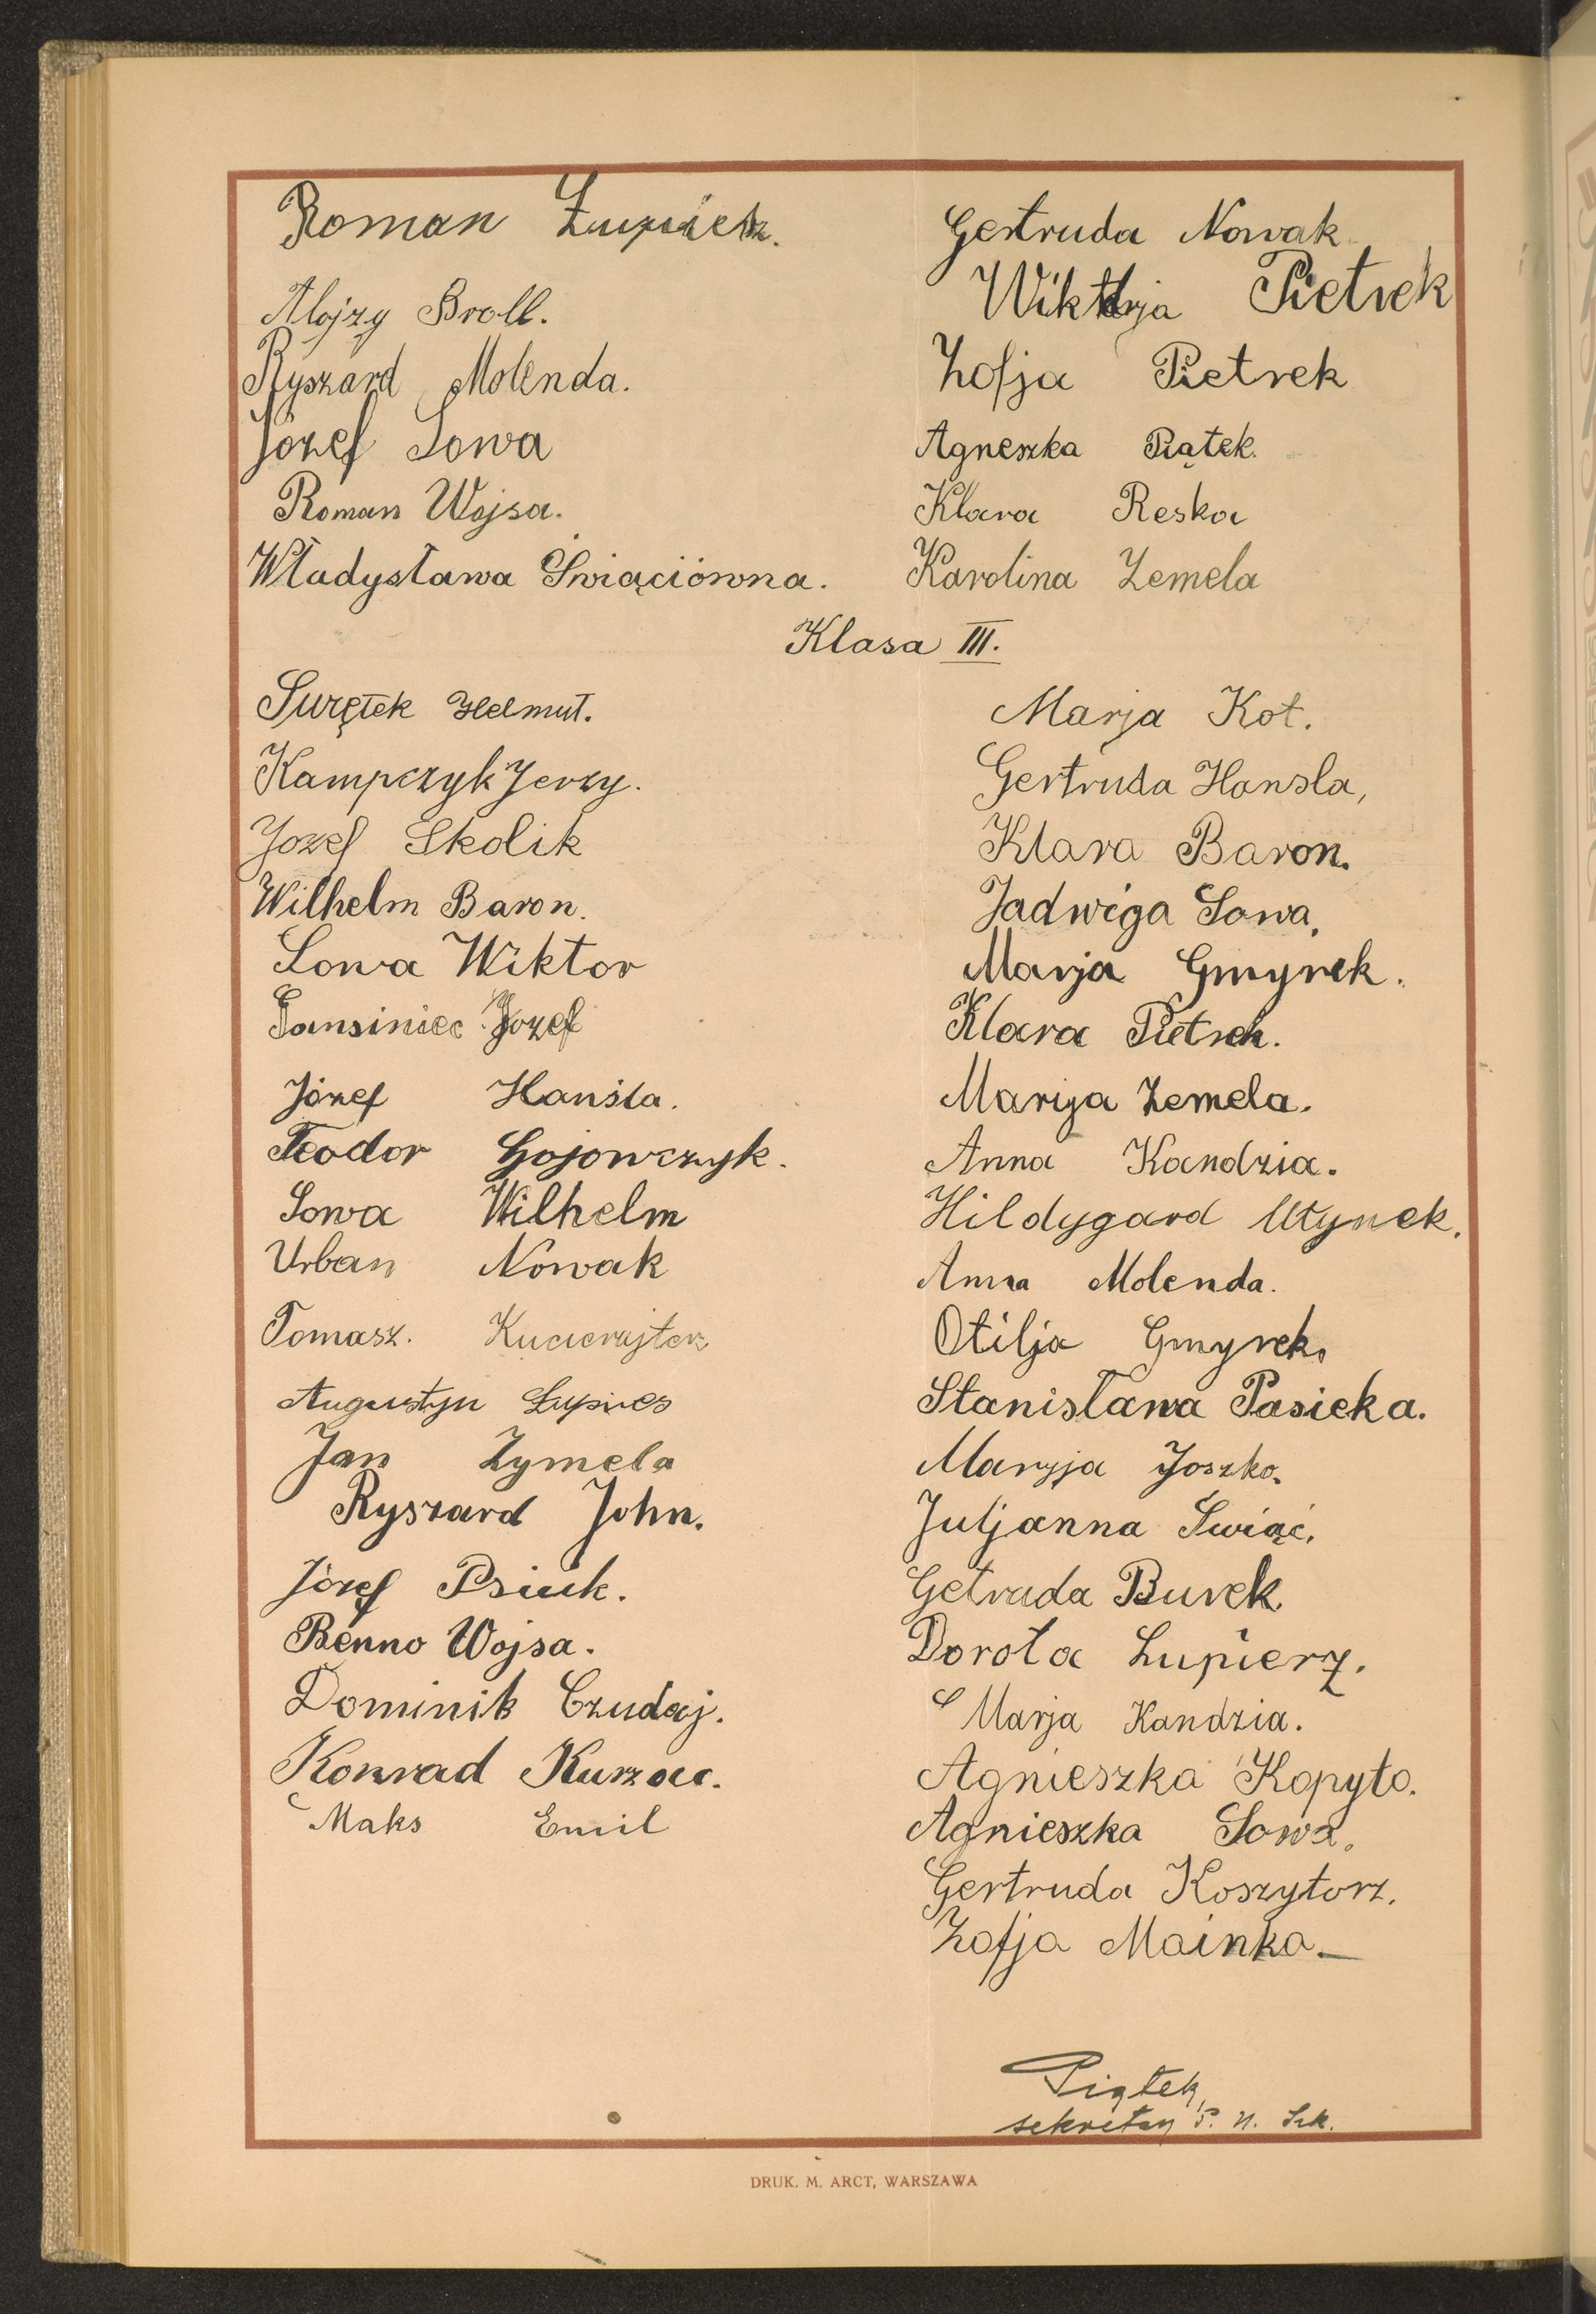 Roman
Alojzy Broll.
Ryszard Molenda.
Józef Sowa
Roman Wojsa.
Władysława Świąciówna.
Gertruda Nowak
Wiktorja Pietrek
Zofja Pietrek
Agneszka Piątek.
Klara Reska
Karolina Zemela
Klasa III.
Surętek Helmut.
Kampczyk Jerzy.
Jozef Skolik
Wilhelm Baron.
Sowa Wiktor
Gansiniec Jozef
Józef Hanśla.
Teodor Gojowczyk.
Sowa Wilhelm
Urban Nowak
Tomasz.
Augustyn
Jan Zymela
Ryszard John.
Józef Psiuk.
Benno Wojsa.
Dominik Czudaj.
Konrad
Maks Emil
Marja Kot.
Gertruda Hansla,
Klara Baron.
Jadwiga Sowa,
Marja Gmyrek.
Klara Pietrek.
Maryja Zemela.
Anna Kandzia.
Hildygard Utynek.
Anna Molenda.
Otilja Gmyrek.
Stanisława Pasieka.
Maryja Joszko.
Juljanna Świąć.
Getruda Burek.
Dorota Lupierz.
Marja Kandzia.
Agnieszka Kopyto.
Agnieszka Sowa.
Gertruda Koszytorz.
Zofja Mainka.
Piątek,
sekretarz P. N. Szk.
DRUK. M. ARCT, WARSZAWA